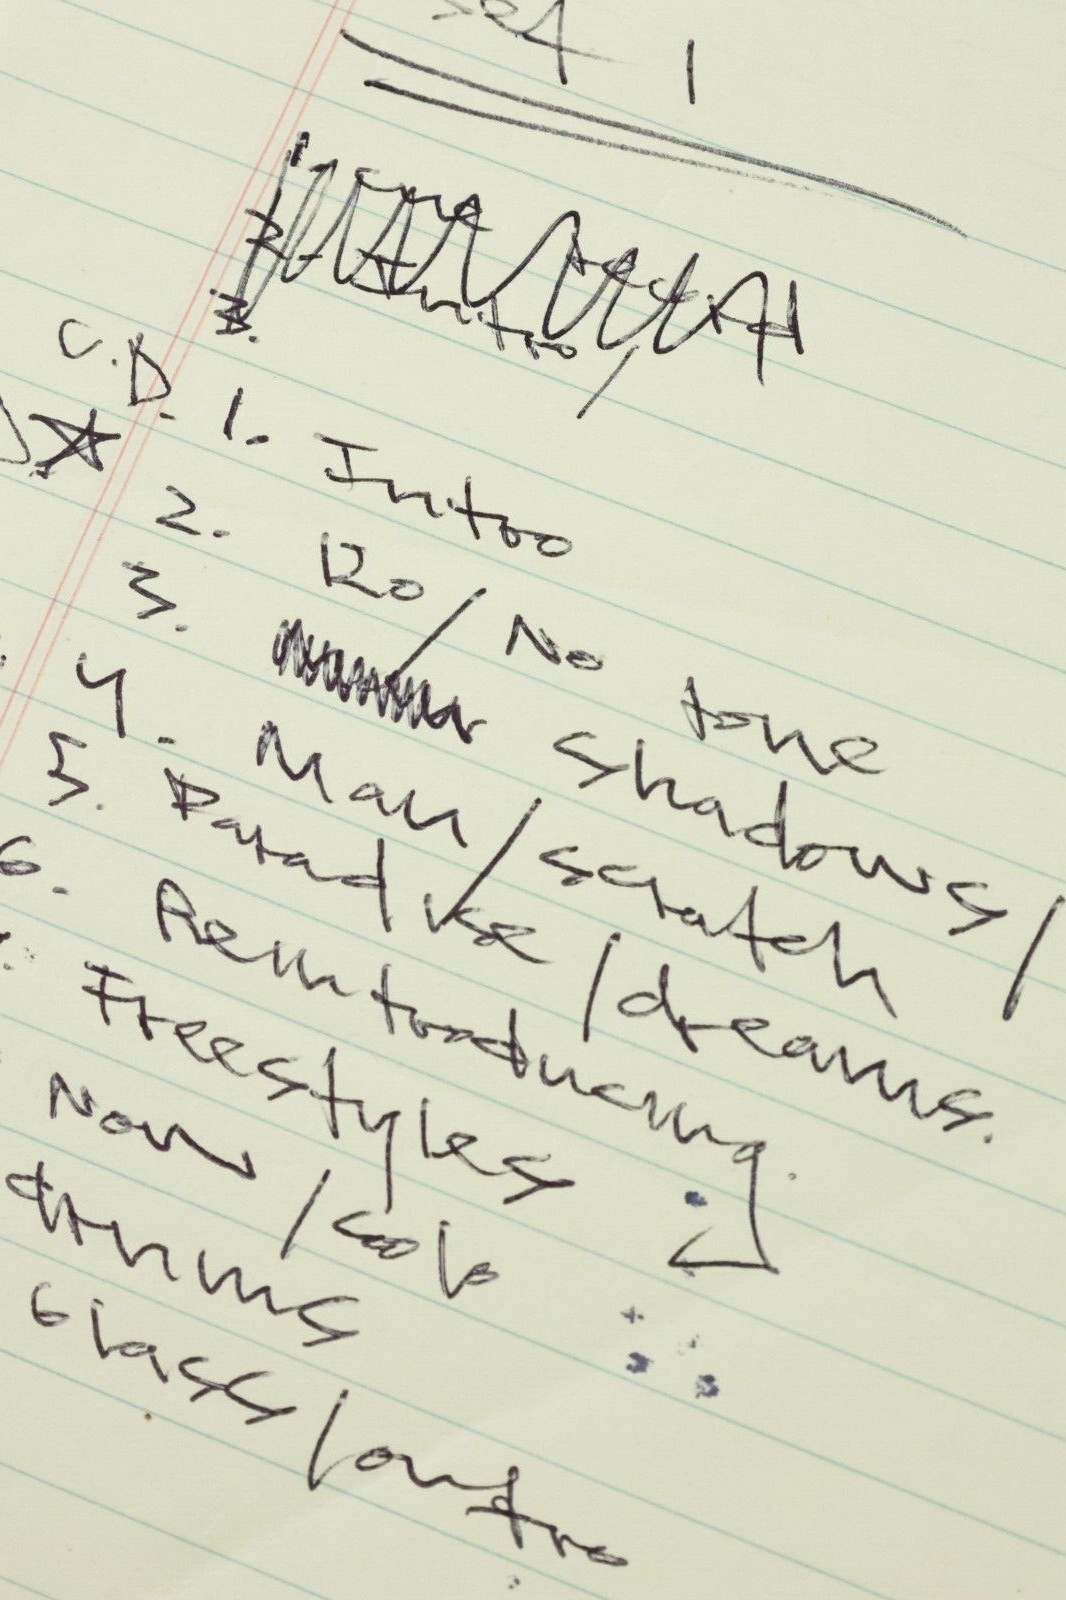 set 1
Intro /
C.D. 1. Intro
2. Ro / No tone
3. shadows /
4. Man / scratch
5. Paradise / dreams.
6. Reintroducing.
Freestyles
Now / solo
drums
Glass / outro